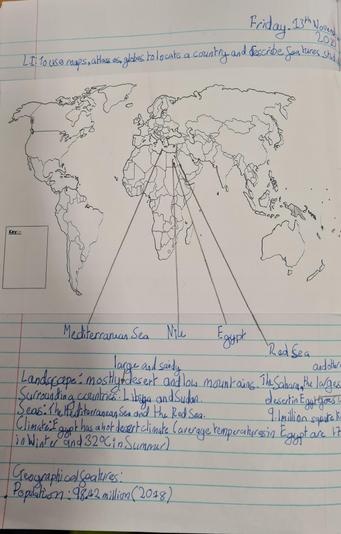 Friday, 13th Novem
LI: To use maps, atlases, globes to locate a country and describe features
Key:
Mediterranean Sea Nile Egypt Red Sea
large and sandy
Landscape: mostly desert and low mountains. The Sahara, the larges
desert in Egypt goes
Surrounding countries: Libya and Sudan.
Seas: The Mediterranean Sea and the Red Sea. 9.1 million square
Climate: Egypt has a hot desert climate (average temperatures in Egypt are 17
in Winter and 32°C in Summer)
Geographical features:
Population: 98.42 million (2018)